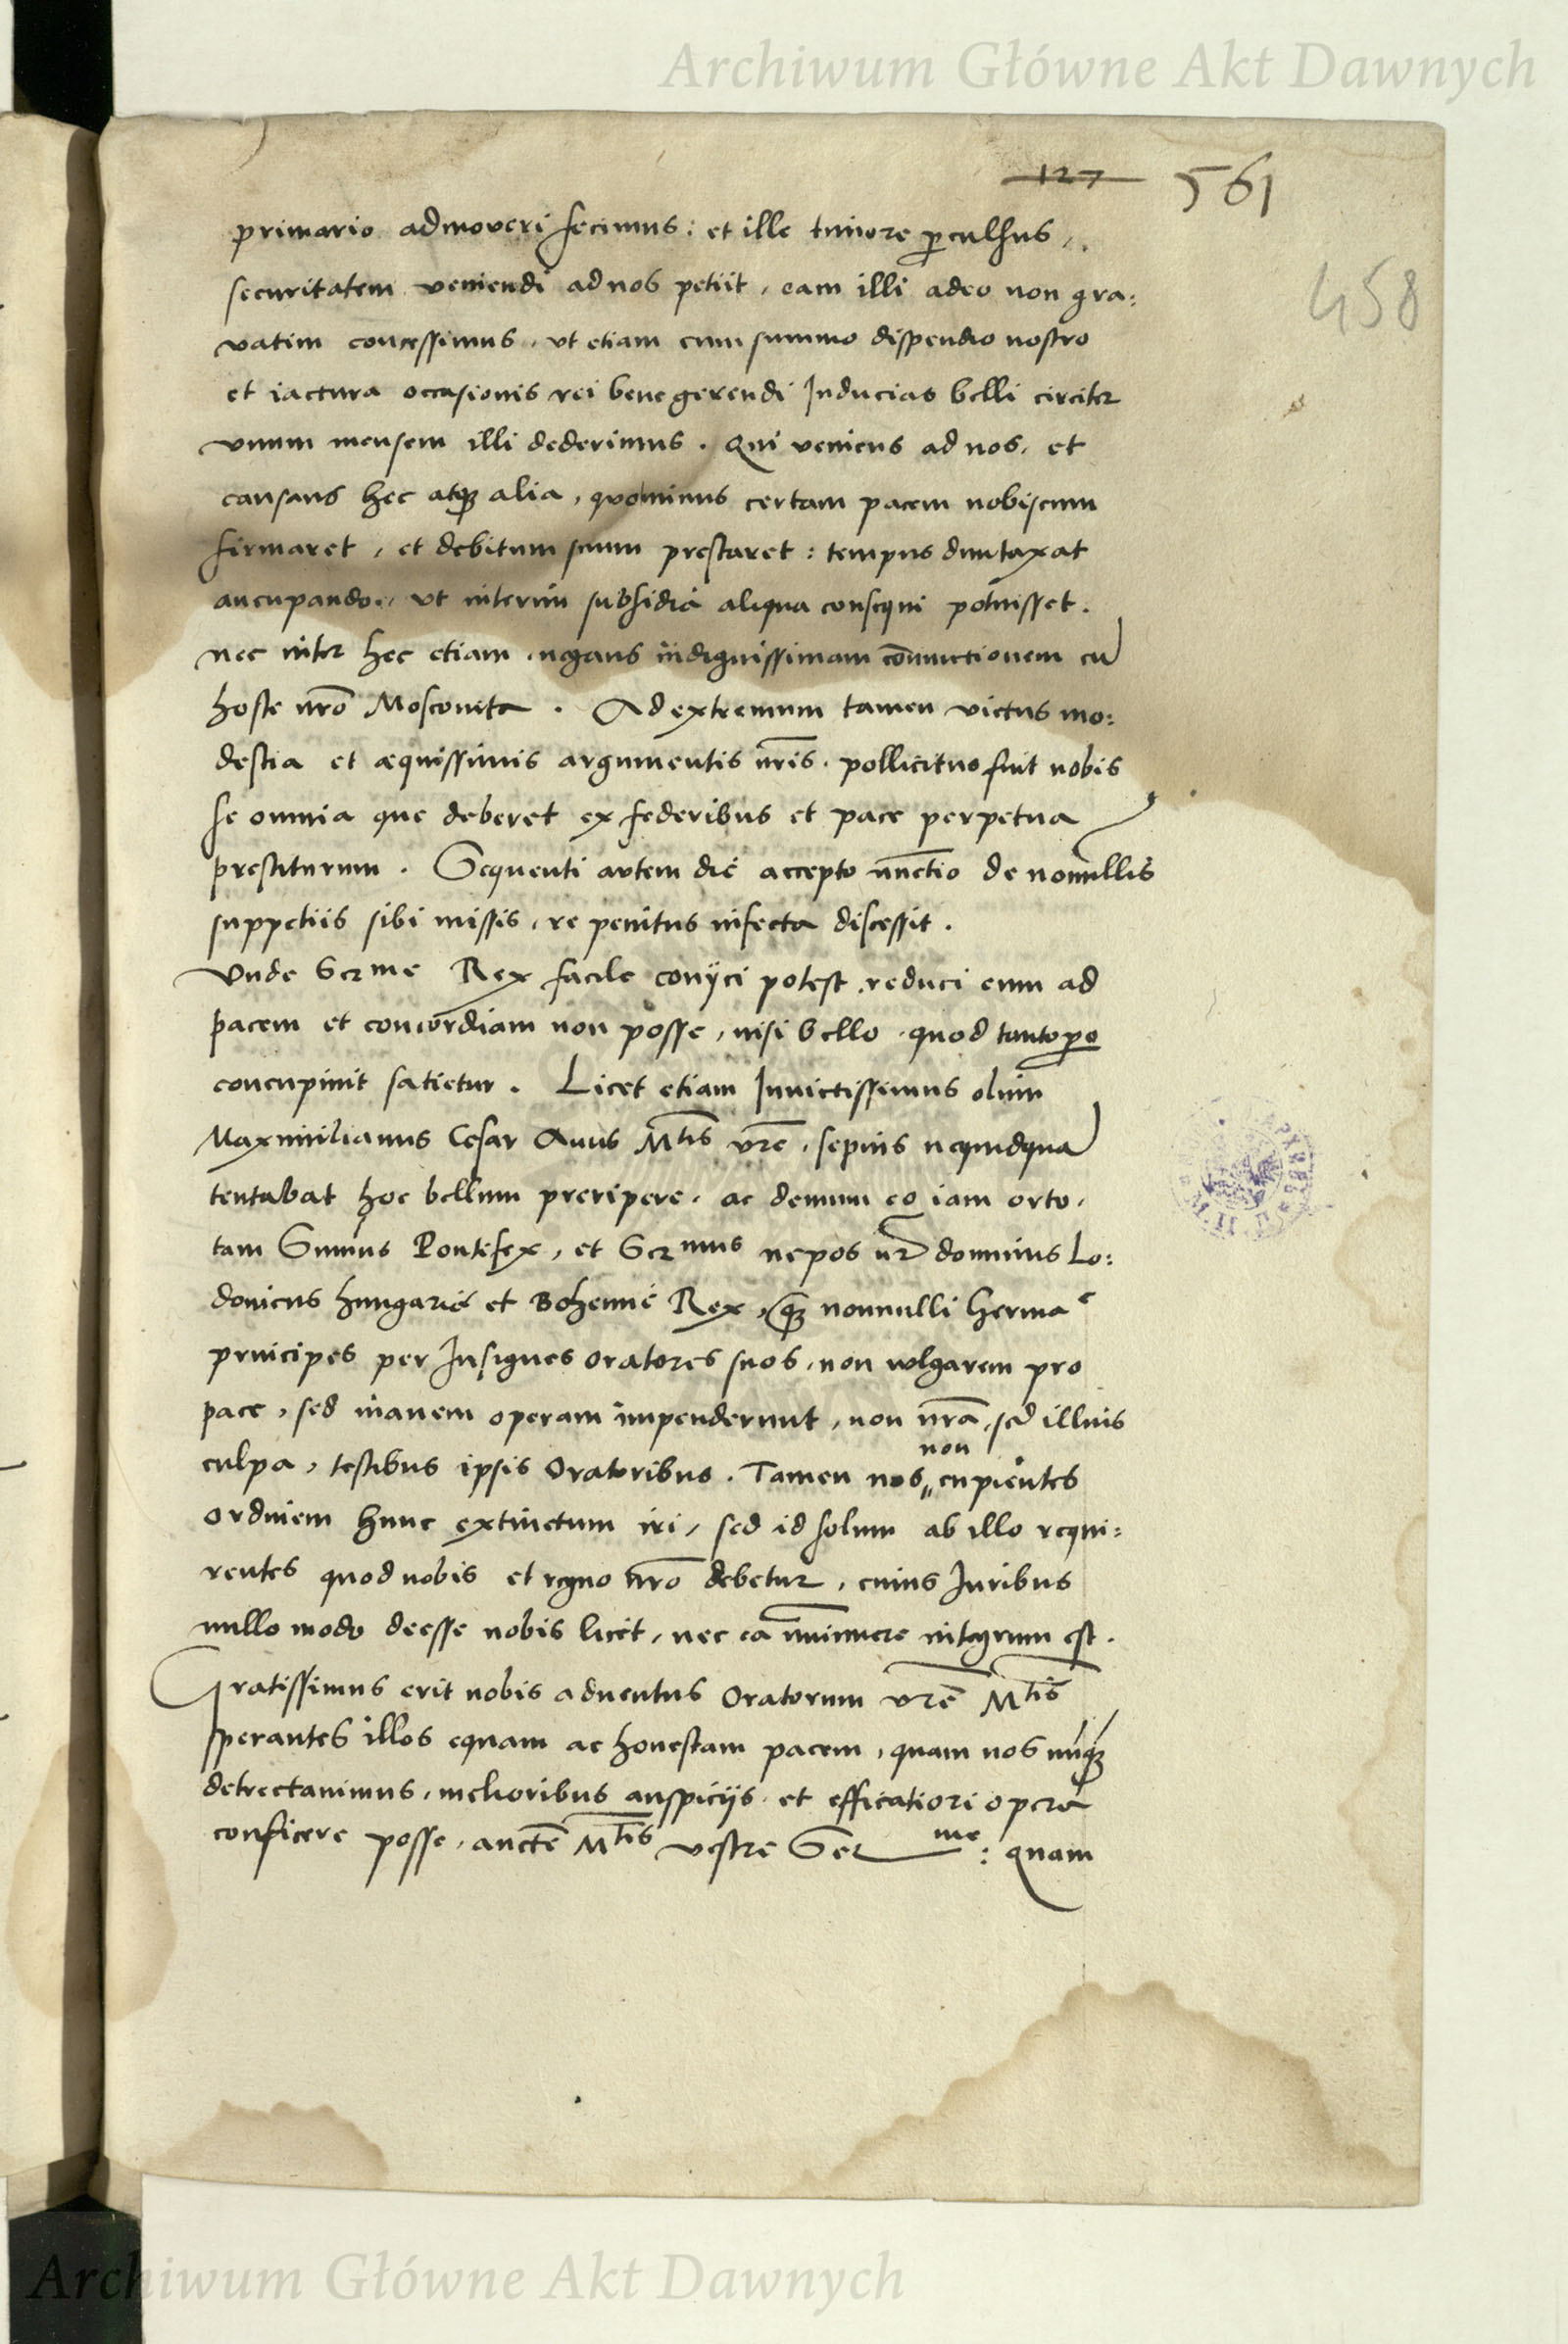 Archiwum Główne Akt Dawnych
127 561
458
primario admoveri fecimus: et ille timore ꝑculsus,
securitatem veniendi ad nos petiit, eam illi adeo non gra:
vatim concessimus, vt etiam cum summo dispendio nostro
et iactura occasionis rei bene gerendi Inducias belli circiter
vnum mensem illi dederimus. Qui veniens ad nos, et
causans hec atqꝫ alia, quominus certam pacem nobiscum
firmaret, et debitum suum prestaret: tempus dumtaxat
aucupando, vt interim subsidia aliqua consequi potuisset.
nec inter hec etiam negans indignissimam cōniunctionem cū
hoste nr̄o Moscovita. Ad extremum tamen victus mo:
destia et æquissimis argumentis nr̄is, pollicitus fuit nobis
se omnia que deberet ex federibus et pace perpetua
prestiturum. Sequenti autem die accepto nūctio de nonnullis
suppetiis sibi missis, re penitus infecta discessit.
Vnde Ser me Rex facile conijci potest reduci eum ad
pacem et concordiam non posse, nisi bello, quod tantoꝑe
concupiuit satietur. Licet etiam Inuictissimus olim
Maximilianus Cesar Auus Mtis vr̄e, sepius nequidquā
tentabat hoc bellum preripere, ac demum eo iam orto,
tam Summus Pontifex, et Ser mus nepos nr̄ dominus Lo:
douicus hungarię et Bohemię Rex, qꝫ nonnulli Germae
principes per Insignes oratores suos, non volgarem pro
pace, sed inanem operam impenderunt, non nr̄a, sed illius
culpa, testibus ipsis Oratoribus. Tamen nos non cupientes
ordinem hunc extinctum iri, sed id solum ab illo requi:
rentes quod nobis et regno nr̄o debetur, cuius Iuribus
nullo modo deesse nobis licet, nec ea īminuere integrum est.
Gratissimus erit nobis aduentus Oratorum vr̄e Mtis
sperantes illos equam ac honestam pacem, quam nos nūqꝫ
detrectauimus, melioribus auspicijs et efficatiori opera
conficere posse, auctē Mtis vestre Ser me: quam
Archiwum Główne Akt Dawnych